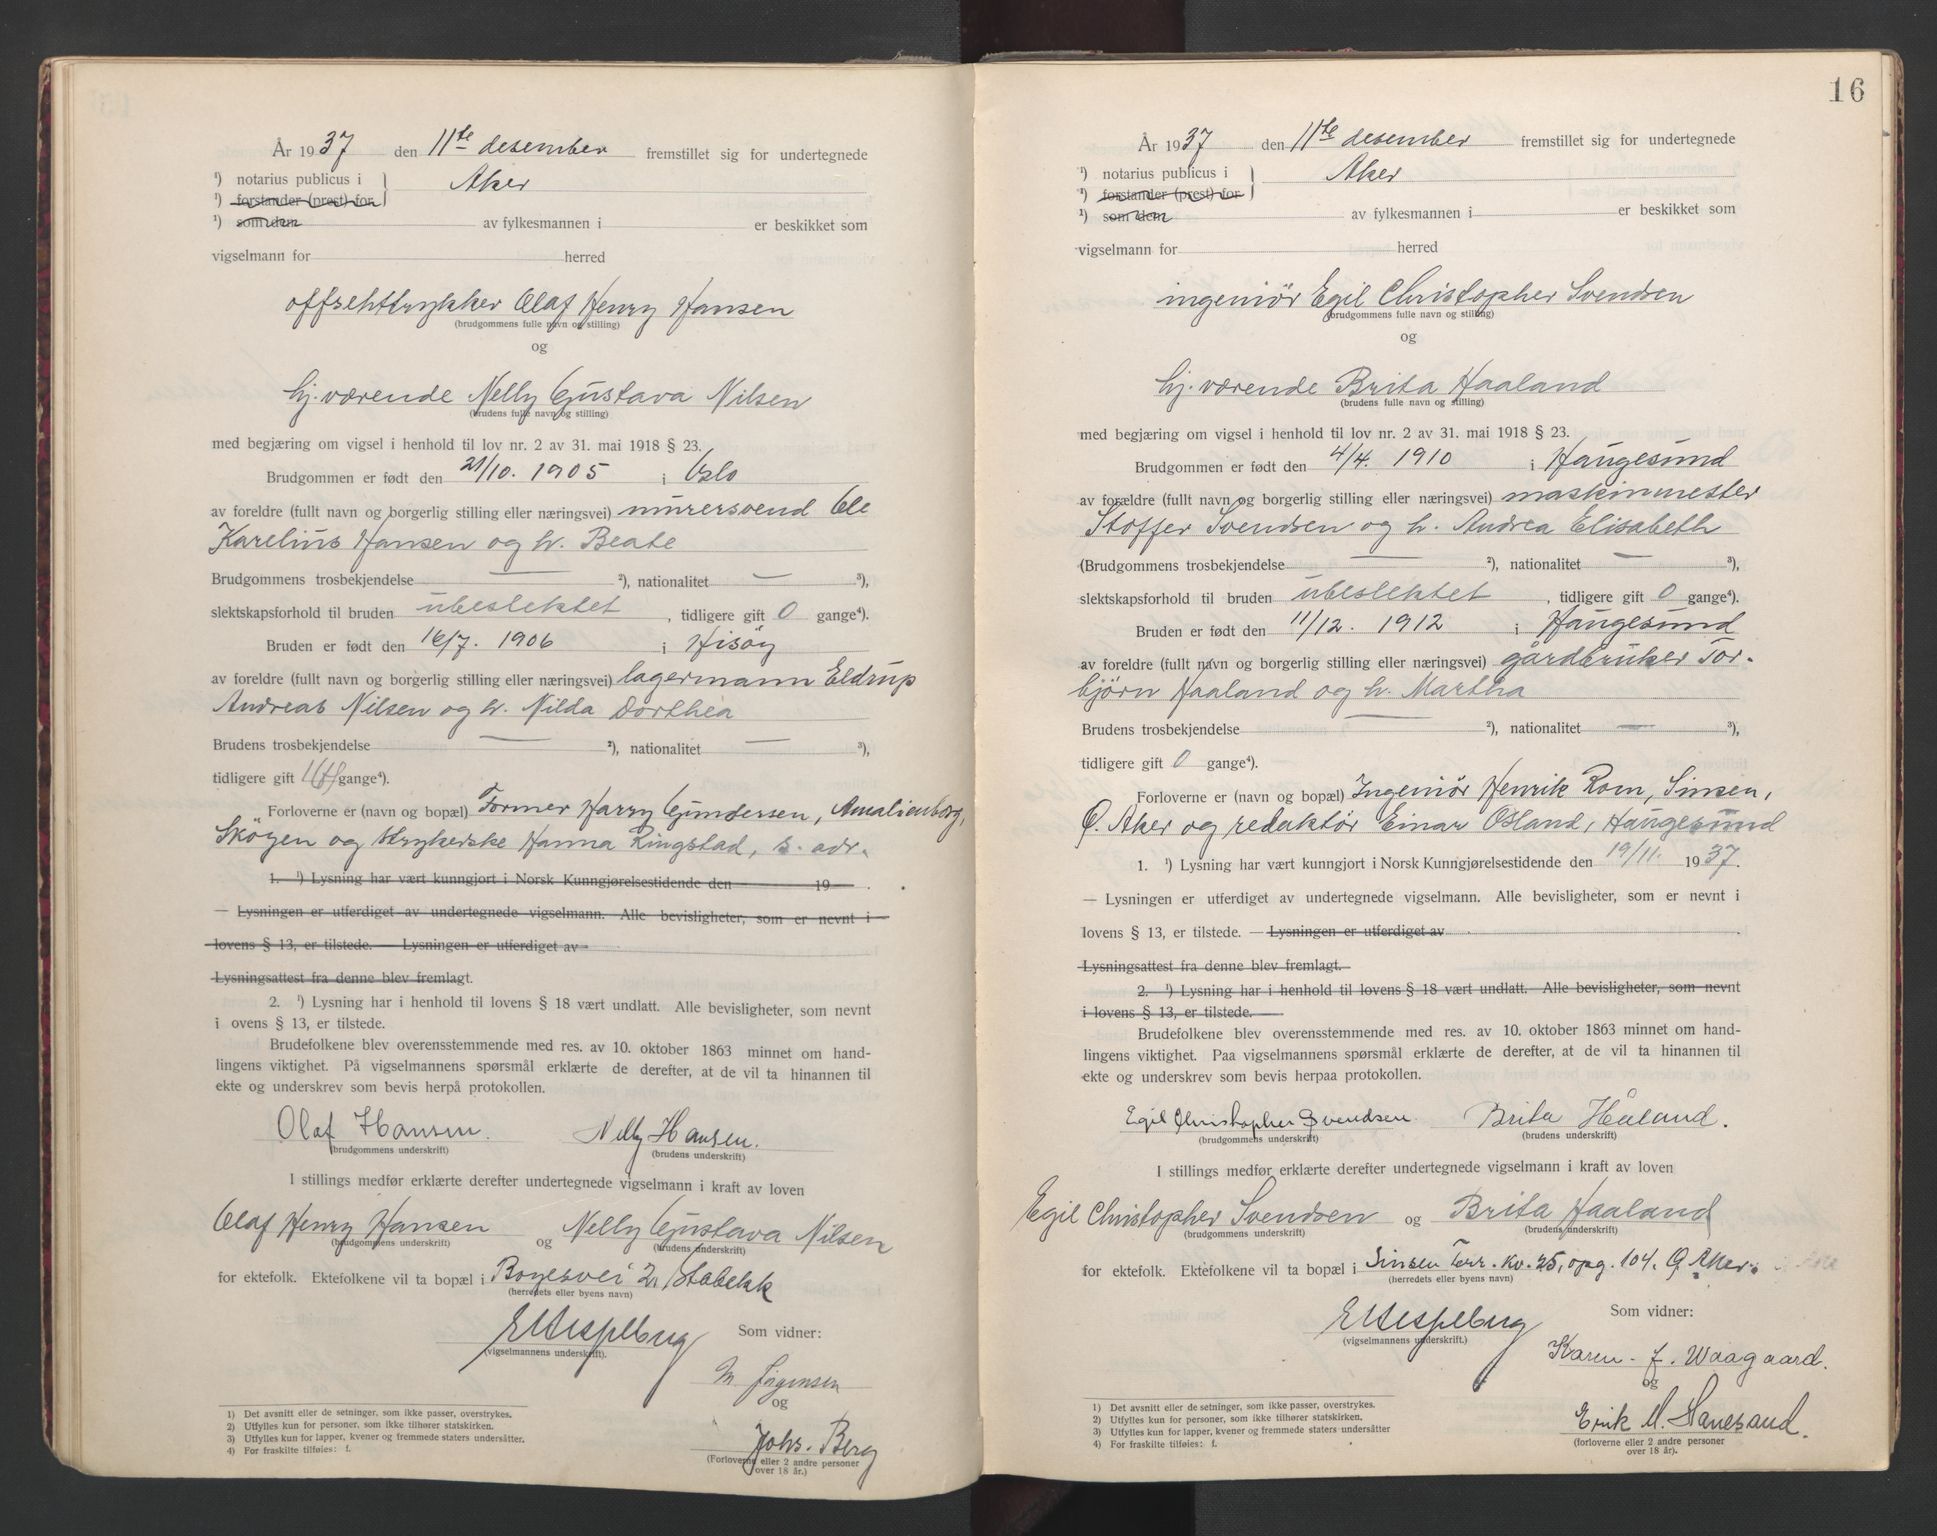 År 1937 den 11te desember fremstillet sig for undertegnede
¹) notarius publicus i Aker
¹) forstander (prest) for
¹) som dem av fylkesmannen i er beskikket som
vigselmann for herred
offsehttrykker Olaf Henry Hansen
(brudgommens fulle navn og stilling)
og
hj. værende Nelly Gustava Nilsen
(brudens fulle navn og stilling)
med begjæring om vigsel i henhold til lov nr. 2 av 31. mai 1918 § 23.
Brudgommen er født den 21/10. 1905 i Oslo
av foreldre (fullt navn og borgerlig stilling eller næringsvei) murersvend Ole
Karelius Hansen og h. Beate
Brudgommens trosbekjendelse — ²), nationalitet — ³),
slektskapsforhold til bruden ubeslektet, tidligere gift 0 gange⁴).
Bruden er født den 16/7. 1906 i Hisöy
av foreldre (fullt navn og borgerlig stilling eller næringsvei) lagermann Eldrup
Andreas Nilsen og h. Nilda Dorthea
Brudens trosbekjendelse — ²), nationalitet — ³),
tidligere gift 1(f) gange⁴).
Forloverne er (navn og bopæl) Former Harry Gundersen, Amalienborg,
Skøyen og strykerske Hanna Ringstad, s. adr.
1. ¹) Lysning har vært kunngjort i Norsk Kunngjørelsestidende den 19
— Lysningen er utferdiget av undertegnede vigselmann. Alle bevisligheter, som er nevnt i
lovens § 13, er tilstede. — Lysningen er utferdiget av
Lysningsattest fra denne blev fremlagt.
2. ¹) Lysning har i henhold til lovens § 18 vært undlatt. Alle bevisligheter, som nevnt
i ovens § 13, er tilstede.
Brudefolkene blev overensstemmende med res. av 10. oktober 1863 minnet om hand-
lingens viktighet. På vigselmannens spørsmål erklærte de derefter, at de vil ta hinannen til
ekte og underskrev som bevis herpå protokollen.
Olaf Hansen. Nelly Hansen.
(brudgommens underskrift) (brudens underskrift)
I stillings medfør erklærte derefter undertegnede vigselmann i kraft av loven
Olaf Henry Hansen og Nelly Gustava Nilsen
(brudgommens underskrift) (brudens underskrift)
for ektefolk. Ektefolkene vil ta bopæl i Boyesvei 21, Stabekk
(herredets eller byens navn)
Som vidner:
(vigselmannens underskrift).
M Jörgensen
og
Johs. Berg
(Forloverne eller 2 andre personer
over 18 år.)
1) Det avsnitt eller de setninger, som ikke passer, overstrykes.
2) Utfylles kun for personer, som ikke tilhører statskirken.
3) Utfylles kun for lapper, kvener og fremmede staters undersåtter.
4) For fraskilte tilføies: f.
16
År 1937 den 11te desember fremstillet sig for undertegnede
¹) notarius publicus i Aker
¹) forstander (prest) for
¹) som dem av fylkesmannen i er beskikket som
vigselmann for herred
ingeniör Egil Christopher Svendsen
(brudgommens fulle navn og stilling)
og
hj. værende Brita Haaland
(brudens fulle navn og stilling)
med begjæring om vigsel i henhold til lov nr. 2 av 31. mai 1918 § 23.
Brudgommen er født den 4/4. 1910 i Haugesund
av forældre (fullt navn og borgerlig stilling eller næringsvei) maskinmester
Stoffer Svendsen og h. Andrea Elisabeth
(Brudgommens trosbekjendelse — ²), nationalitet — ³),
slektskapsforhold til bruden ubeslektet, tidligere gift 0 gange⁴).
Bruden er født den 11/12. 1912 i Haugesund
av foreldre (fullt navn og borgerlig stilling eller næringsvei) gårdbruker Tor-
björn Haaland og h. Martha
Brudens trosbekjendelse — ²), nationalitet — ³),
tidligere gift 0 gange⁴).
Forloverne er (navn og bopæl) Ingeniör Henrik Rom, Sinsen,
Ö. Aker og redaktör Einar Osland, Haugesund
1. ¹) Lysning har vært kunngjort i Norsk Kunngjørelsestidende den 19/11. 1937.
— Lysningen er utferdiget av undertegnede vigselmann. Alle bevisligheter, som er nevnt i
lovens § 13, er tilstede. — Lysningen er utferdiget av
Lysningsattest fra denne blev fremlagt.
2. ¹) Lysning har i henhold til lovens § 18 vært undlatt. Alle bevisligheter, som nevnt
i lovens § 13, er tilstede.
Brudefolkene blev overensstemmende med res. av 10. oktober 1863 minnet om hand-
lingens viktighet. Paa vigselmannens spørsmål erklærte de derefter, at de vil ta hinannen til
ekte og underskrev som bevis herpaa protokollen.
Egil Christopher Svendsen. Brita Håland.
(brudgommens underskrift) (brudens underskrift)
I stillings medfør erklærte derefter undertegnede vigselmann i kraft av loven
Egil Christopher Svendsen og Brita Haaland
(brudgommens underskrift) (brudens underskrift)
for ektefolk. Ektefolkene vil ta bopæl i Sinsen Terr. kv. 25, opg. 104. Ö. Aker.
(herredets eller byens navn)
Som vidner:
(vigselmannens underskrift.)
Karen. F. Waagaard.
og
Erik M. Hanesand.
(forloverne eller 2 andre personer
over 18 år).
1) Det avsnitt eller de setninger, som ikke passer, overstrykes.
2) Utfylles kun for personer, som ikke tilhører statskirken.
3) Utfylles kun for lapper, kvener og fremmede staters undersåtter
4) For fraskilte tilføies: f.